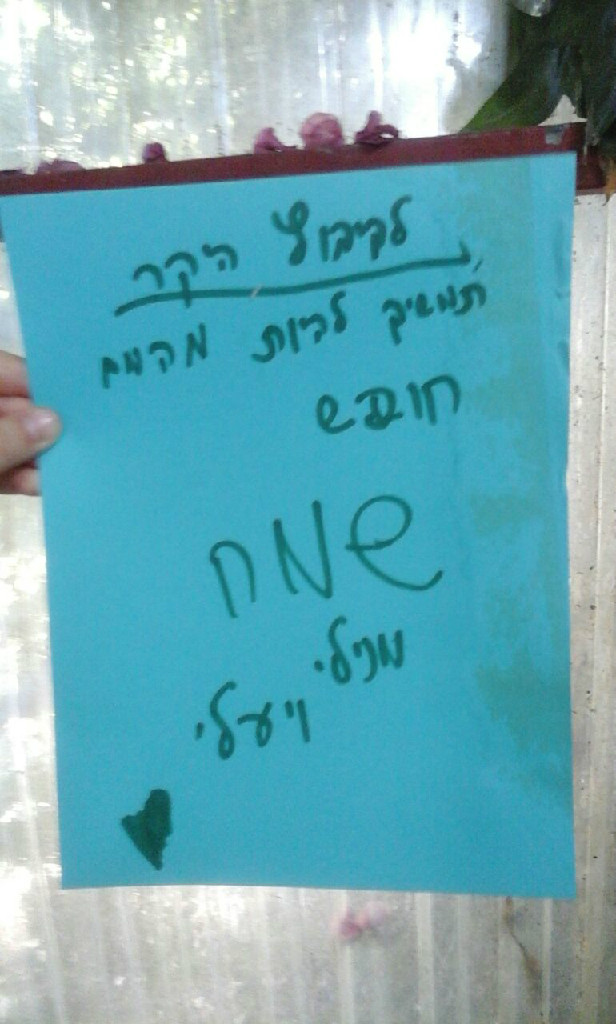 לקיבוץ היקר
תמשיך להיות מהמם
חופש
שמח
מנילי
ויעלי